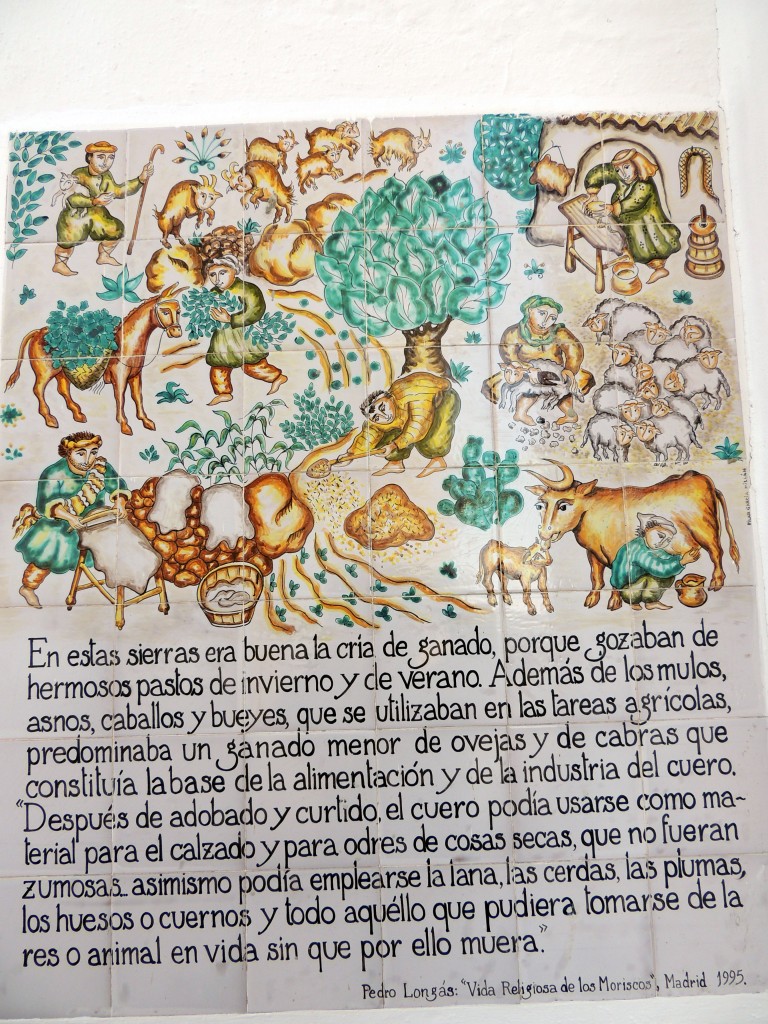 En estas sierras era buena la cría de ganado, porque gozaban de
hermosos pastos de invierno y de verano. Además de los mulos,
asnos, caballos y bueyes, que se utilizaban en las tareas agrícolas,
predominaba un ganado menor de ovejas y de cabras que
constituía la base de la alimentación y de la industria del cuero.
"Después de adobado y curtido, el cuero podía usarse como ma-
terial para el calzado y para odres de cosas secas, que no fueran
zumosas... asimismo podía emplearse la lana, las cerdas, las plumas,
los huesos o cuernos y todo aquéllo que pudiera tomarse de la
res o animal en vida sin que por ello muera."
Pedro Longás: "Vida Religiosa de los Moriscos", Madrid 1995.